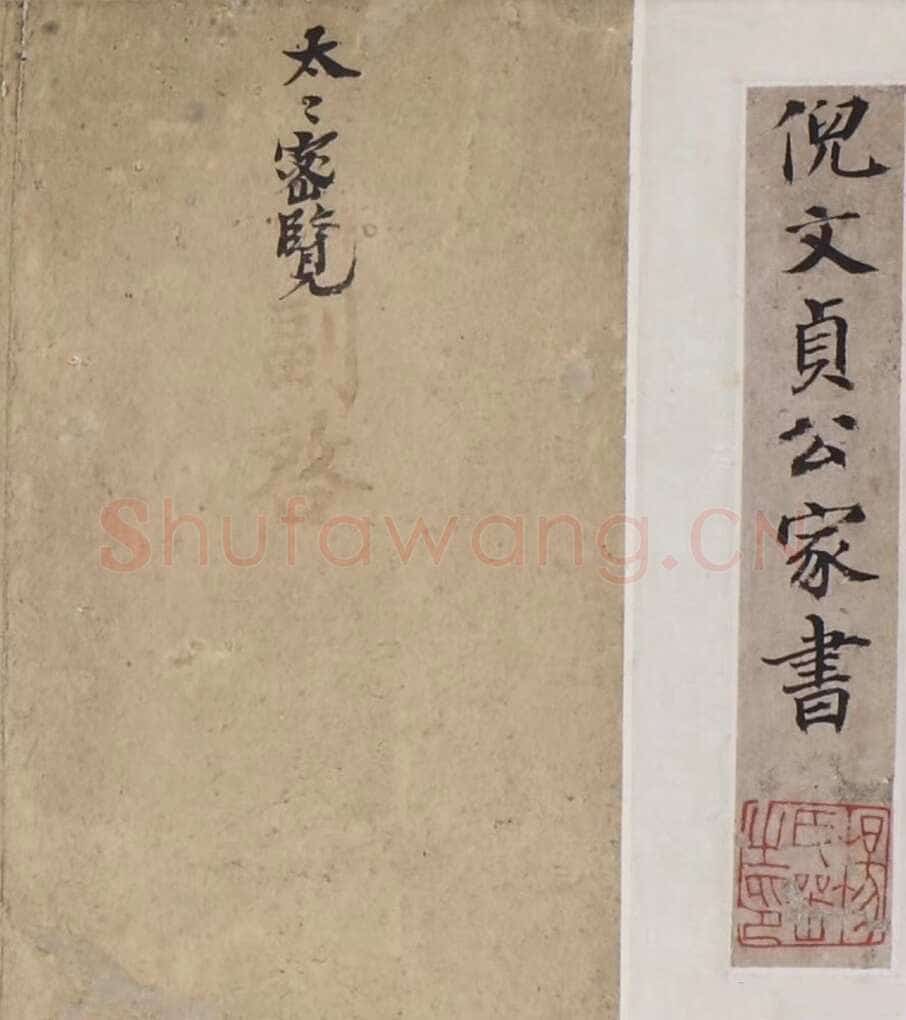 倪文貞公家書
太〻密覽
副啓
Shufawang.CN